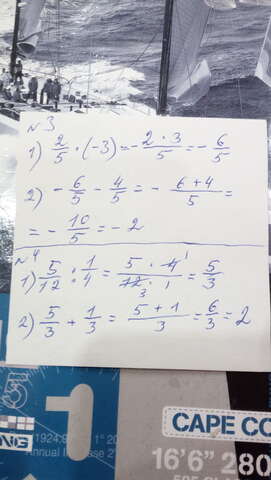 №3
1) 2/5 · (-3) = - 2 · 3/5 = - 6/5
2) - 6/5 - 4/5 = - 6+4/5 =
= - 10/5 = - 2
№4
1) 5/12 : 1/4 = 5 · 4 1/12 3 · 1 = 5/3
2) 5/3 + 1/3 = 5+1/3 = 6/3 = 2
1
1924:9
Annual
CAPE CO
16'6" 280